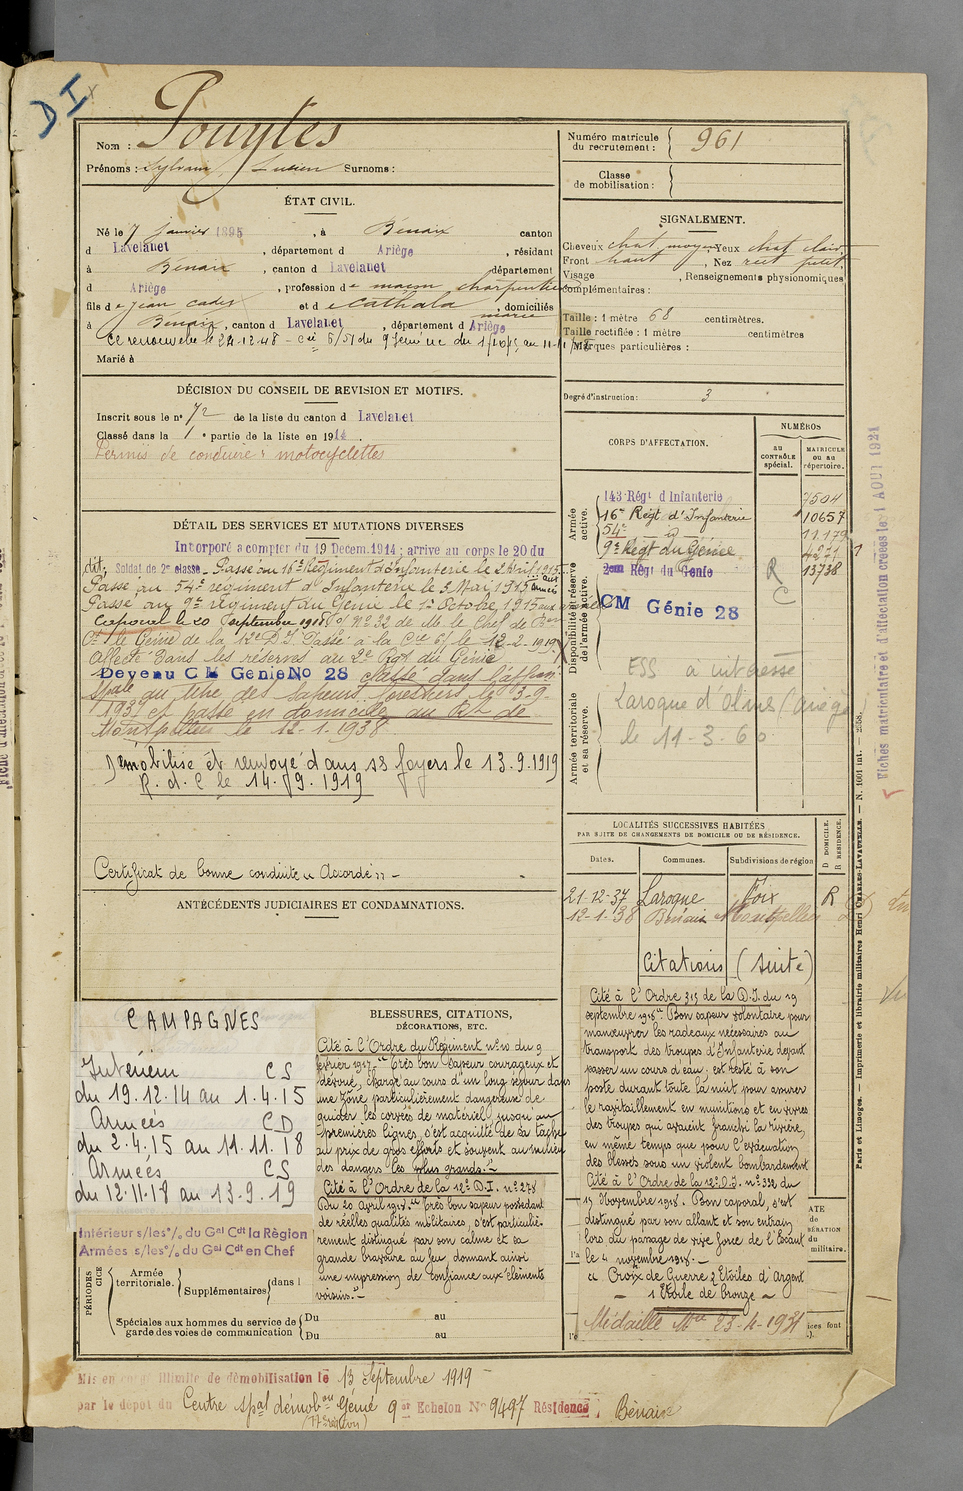 D I
Nom : Pouytes
Prénoms : Sylvain, Lucien Surnoms :
Numéro matricule du recrutement : 961
Classe de mobilisation :
ÉTAT CIVIL.
Né le 7 janvier 1895, à Bénaix canton
d Lavelanet, département d Ariège, résidant
à Bénaix, canton d Lavelanet département
d Ariège, profession de maçon charpentier
fils de Jean cadet et de Cathala marie, domiciliés
à Bénaix, canton d Lavelanet, département d Ariège
Marié à
SIGNALEMENT.
Cheveux chât moyen Yeux chât clair
Front haut, Nez rect petit
Visage, Renseignements physionomiques
complémentaires :
Taille : 1 mètre 68 centimètres.
Taille rectifiée : 1 mètre centimètres
Marques particulières :
Degré d'instruction : 3
DÉCISION DU CONSEIL DE REVISION ET MOTIFS.
Inscrit sous le n° 72 de la liste du canton d Lavelanet
Classé dans la 1e partie de la liste en 1914.
Permis de conduire : motocyclettes
DÉTAIL DES SERVICES ET MUTATIONS DIVERSES
Incorporé à compter du 19 Décem. 1914 ; arrive au corps le 20 du
dit. Soldat de 2e classe. Passé au 16e Régiment d'Infanterie le 2 Avril 1915.
Passé au 54e régiment d'Infanterie le 3 Mai 1915 aux armées
Passé au 9e régiment du Génie le 1er Octobre 1915 aux armées
Caporal le 20 septembre 1918 N° 32 de Mr le Chef de Bon
Ct le Génie de la 12e D.I. Passé à la Cie 6/ le 12-2-1919
Affecté dans les réserves au 2e Rgt du Génie
Devenu CM Génie No 28 Classé dans l'affon
Spale au titre des sapeurs forestiers le 3-9-
1937 et passé en domicile au Bt de
Montpellier le 12-1-1938
Démobilisé et renvoyé dans ses foyers le 13.9.1919
R. d. C le 14.9.1919
Certificat de bonne conduite « Accordé » -
ANTÉCÉDENTS JUDICIAIRES ET CONDAMNATIONS.
CORPS D'AFFECTATION.
NUMÉROS
AU CONTRÔLE spécial.
MATRICULE OU AU répertoire.
Armée active.
143 Régt d Infanterie 7504
16e Régt d'Infanterie 10657
54e d° 11179
9e Régt du Génie
Disponibilité et réserve de l'armée active.
2eme Régt du Génie R 13738
CM Génie 28 C
Armée territoriale et sa réserve.
ESS à intéressé
Laroque d'Olmes (Ariège
le 11-3-60
LOCALITÉS SUCCESSIVES HABITÉES
PAR SUITE DE CHANGEMENTS DE DOMICILE OU DE RÉSIDENCE.
Dates. Communes. Subdivisions de région
D DOMICILE.
R RÉSIDENCE.
21-12-37 Laroque Foix R
12-1-38 Bénaix Montpellier D
Citations (suite)
Cité à l'Ordre 315 de la D.I. du 19
septembre 1918 "Bon sapeur volontaire pour
manœuvrer les radeaux nécessaires au
transport des troupes d'Infanterie devant
passer un cours d'eau ; est resté à son
poste durant toute la nuit pour assurer
le ravitaillement en munitions et en vivres
des troupes qui avaient franchi la rivière,
en même temps que pour l'évacuation
des blessés sous un violent bombardement
Cité à l'Ordre de la 12e D.I. n° 332 du
15 Novembre 1918. Bon caporal, s'est
distingué par son allant et son entrain
lors du passage de vive force de l'Escaut
le 4 novembre 1918. -
" Croix de Guerre 2 Etoiles d'Argent
- 1 Etoile de bronze -
Médaille Mre 23-4-1931
CAMPAGNES
Intérieur CS
du 19.12.14 au 1.4.15
Armées CD
du 2.4.15 au 11.11.18
Armées CS
du 12.11.18 au 13.9.19
Intérieur s/les°/₀ du Gal Cdt la Région
Armées s/les°/₀ du Gal Cdt en Chef
BLESSURES, CITATIONS,
DÉCORATIONS, ETC.
Cité à l'Ordre du Régiment n° 10 du 9
février 1917. "Très bon sapeur courageux et
dévoué, chargé au cours d'un long séjour dans
une zone particulièrement dangereuse de
guider les corvées de matériel jusqu'aux
premières lignes, s'est acquitté de sa tâche
au prix de gros efforts et souvent au milieu
des dangers les plus grands."
Cité à l'Ordre de la 12e D.I. n° 278
Du 20 avril 1918. "très bon sapeur possédant
de réelles qualités militaires, s'est particuliè-
rement distingué par son calme et sa
grande bravoure au feu donnant ainsi
une impression de confiance aux éléments
voisins."
PÉRIODES
Armée territoriale.
Supplémentaires
dans l
Spéciales aux hommes du service de garde des voies de communication
Du au
Du au
Mis en congé illimité de démobilisation le 13 Septembre 1919
par le dépôt du Centre spal démobon Génie 9 Echelon No 9497 Résidence Bénaix
(17e région)
Fiches matriculaire et d'affectation créées le : 1 AOUT 1921
Paris et Limoges. — Imprimerie et librairie militaires Henri CHARLES-LAVAUZELLE. — N. 1001 int. — 258.